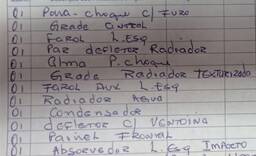 01 Para-choque c/ Furo
01 Grade Central
01 Farol L. Esq
01 Par defletor Radiador
01 Alma P. choque
01 Grade Radiador Texturizado
01 Farol Aux L. Esq
01 Radiador Agua
01 Condensador
01 defletor c/ Ventoina
01 Painel Frontal
01 Absorvedor L. Esq Impacto